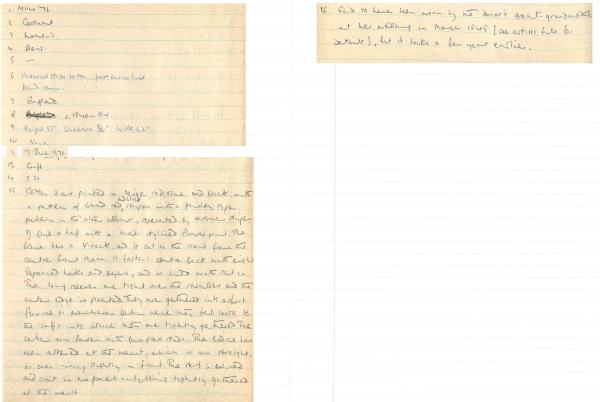 1. Misc '76
2. Costume
3. Women's
4. Dress.
5 —
6 Patterned stripe cotton, part cotton lined
Hand sewn.
7. England
8 c. 1840
9 Height 51" 36"
10 None
11 19 June 1976
13. Gift
14 £20
15 Cotton dress printed in beige red, blue and black with
a pattern of broad red stripes with a
pattern in the other colours, separated by narrow stripes
of blue & buff with a small stylised flower print. The
bodice has a V-neck, and is cut in the front from the
centre front seam. It fastens centre back with eight
hooks and eyes, and is lined with cotton.
The long sleeves are tight over the shoulder and the
outer edge is pleated. They are gathered into a short
below which they fall loose to
the cuffs into which they are tightly gathered. The
fasten with The bodice has
been altered at the waist, which is now straight,
or even rising slightly in front. The skirt is
and cut in being tightly gathered
at the waist
16 Said to have been worn by the donor's great-grandmother
at her wedding in March 1849 (see artist's file for
details), but it looks a few years earlier.